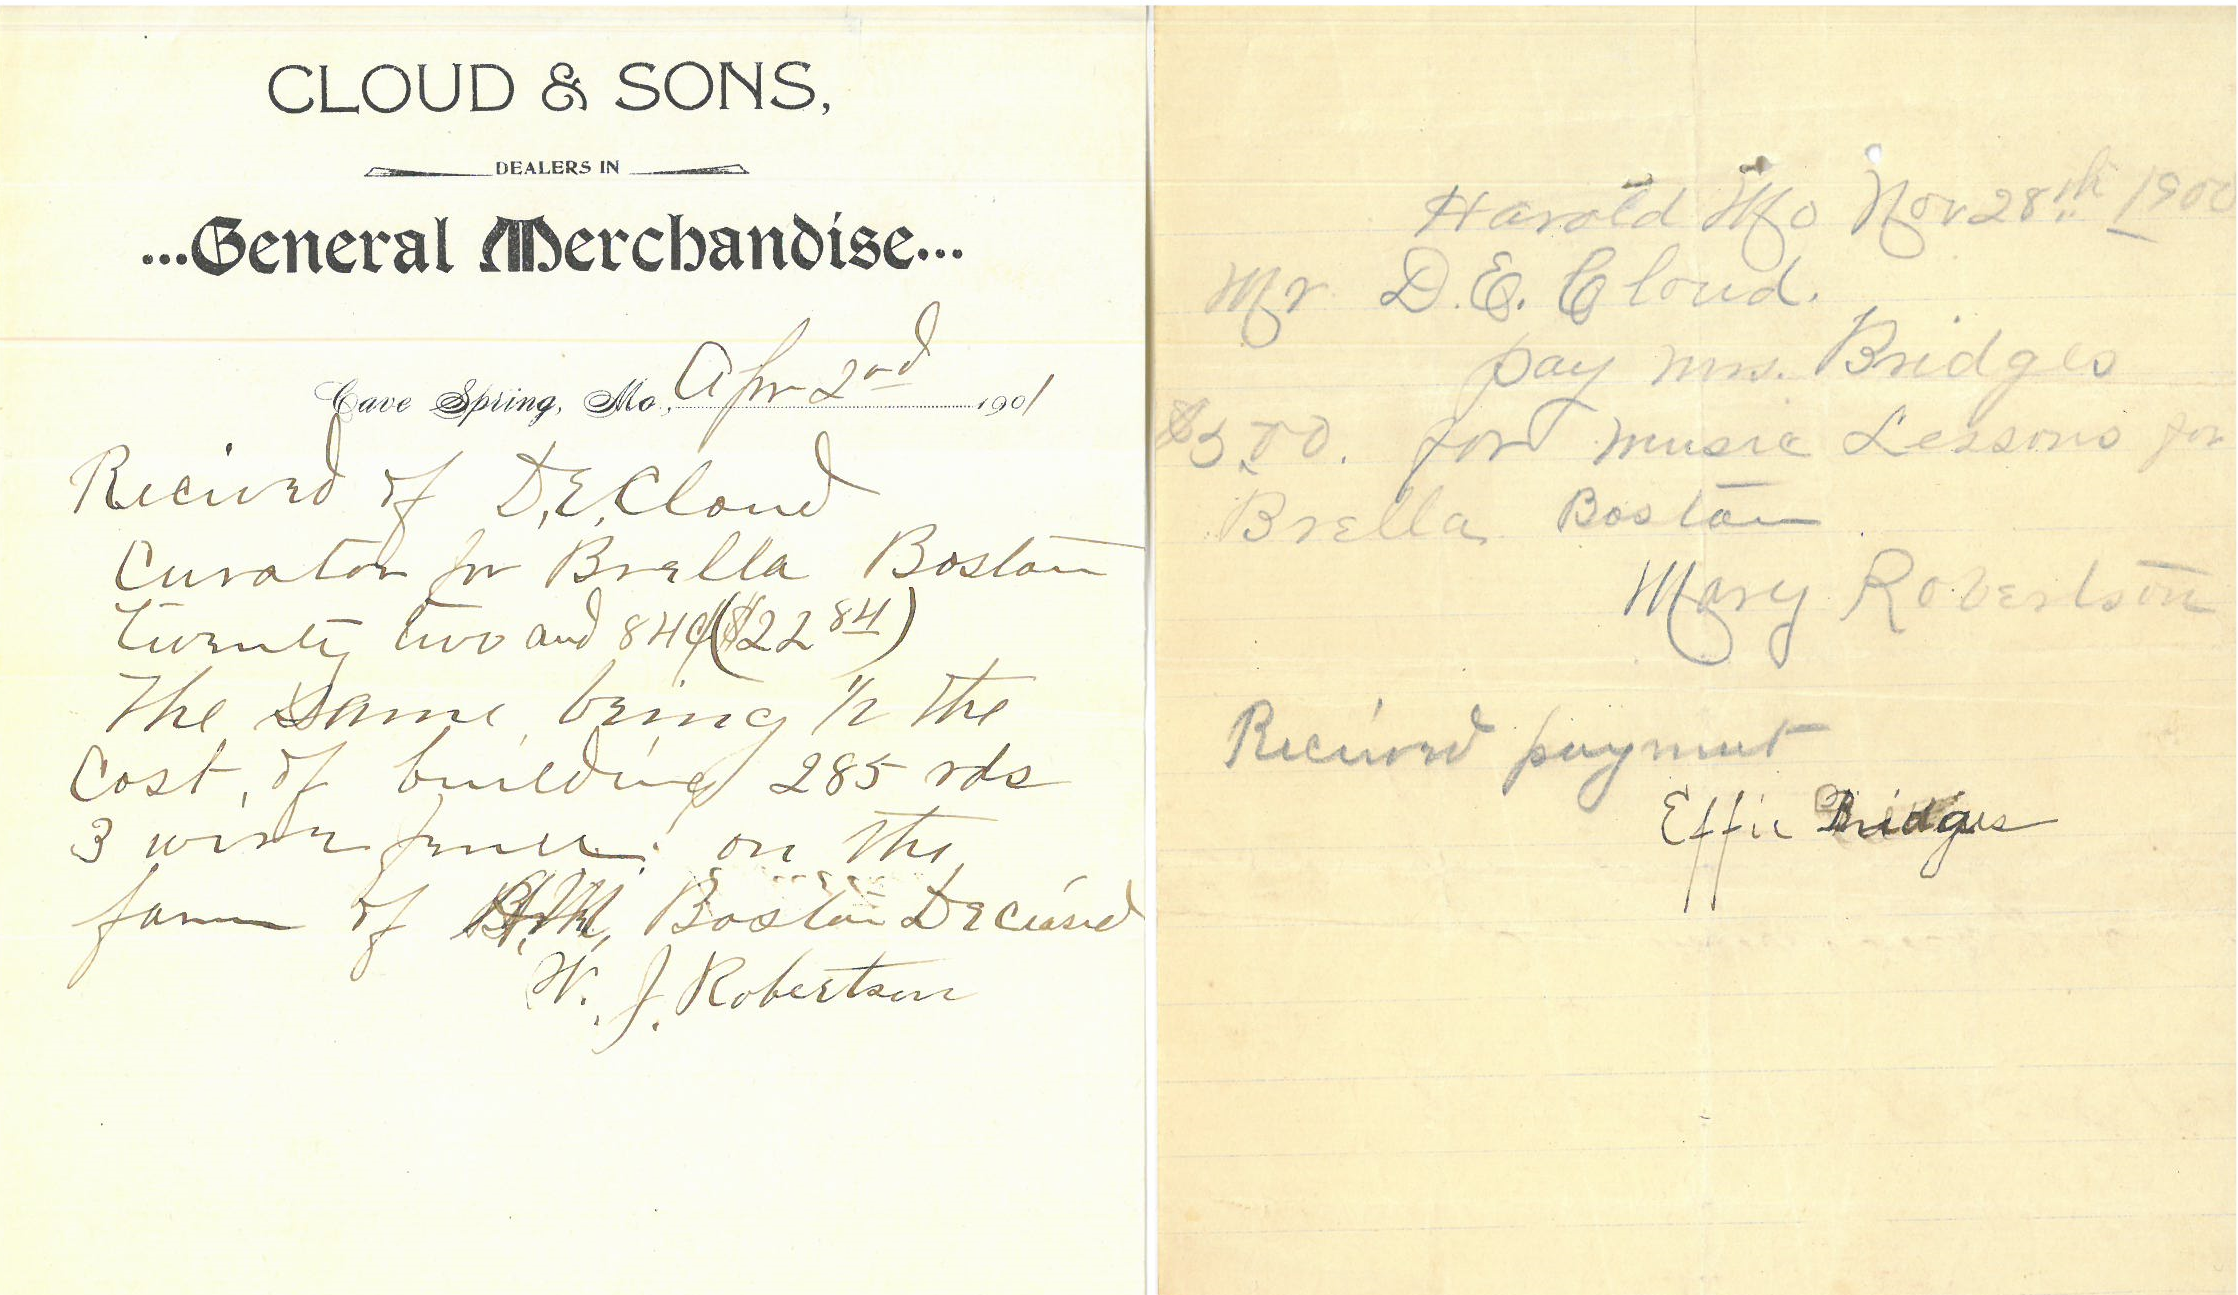 CLOUD & SONS,
DEALERS IN
...General Merchandise...
Cave Spring, Mo., Apr 2nd 1901
Recieved of D.E. Cloud
Curator for Brella Boston
Twenty two and 84¢ ($22 84)
The Same being 1/2 the
Cost of building 285 rds
3 wire fence on the
farm of Boston Deceased
W. J. Robertson
Harold Mo Nov 28th 1900
Mr D.E. Cloud.
pay mrs. Bridges
$3.00. for music Lessons for
Brella Boston
Mary Robertson
Recieved payment
Effie Bridges